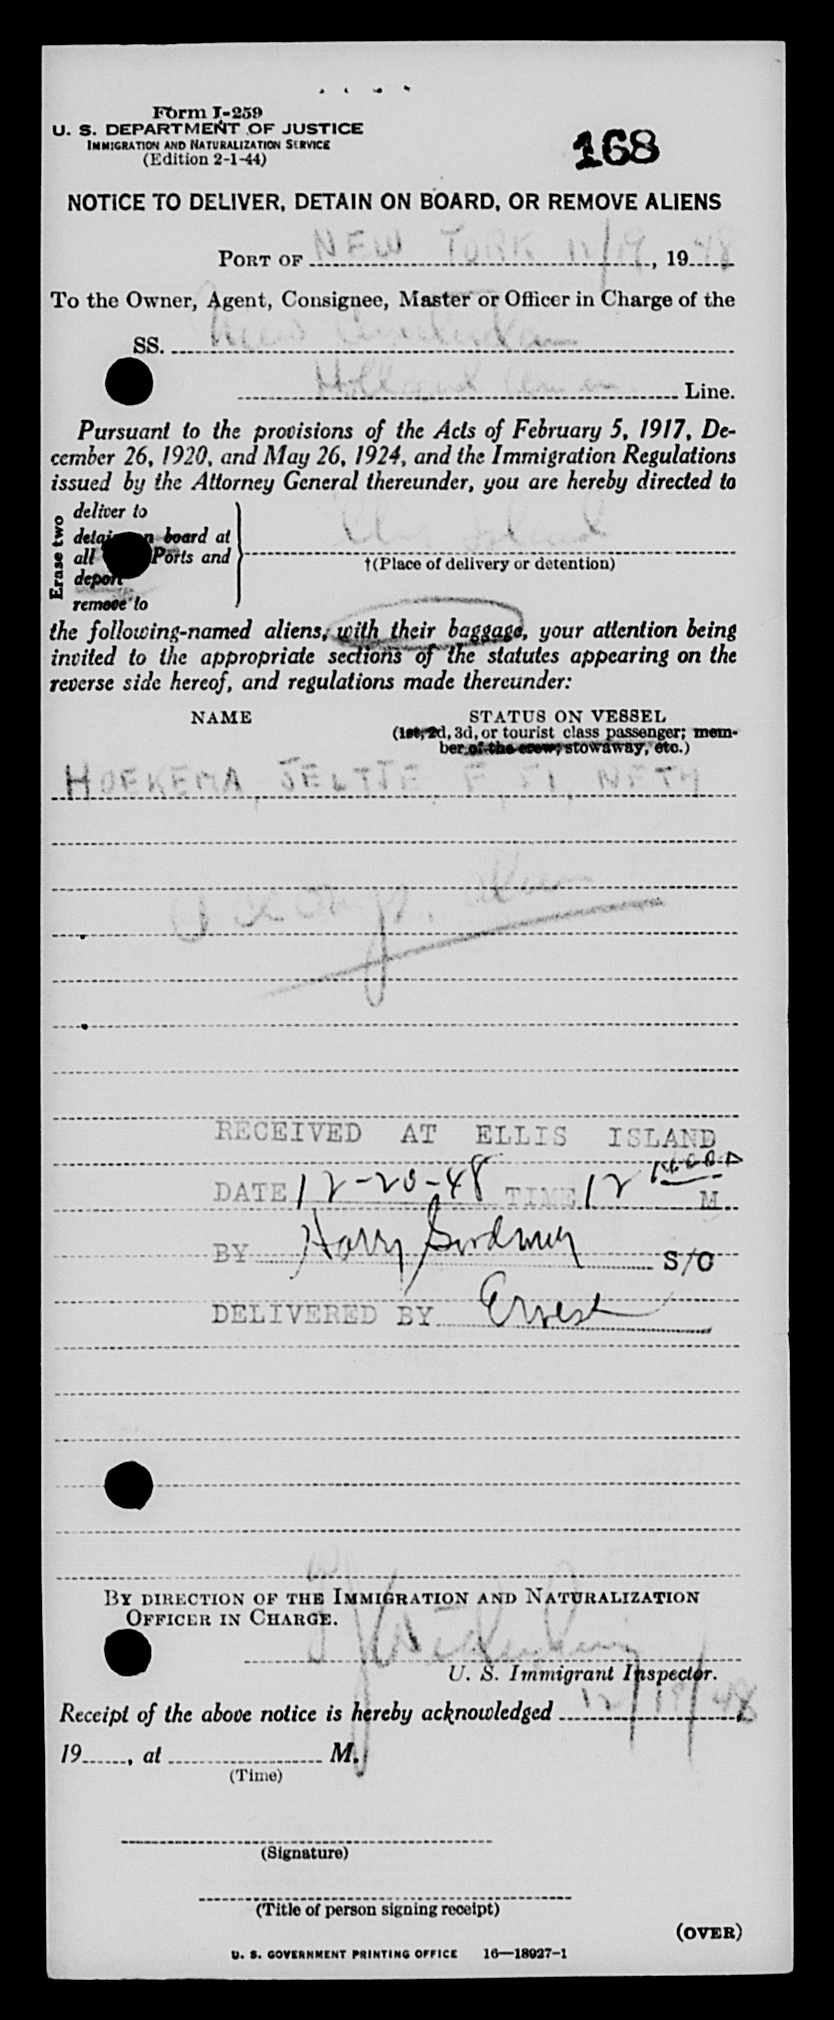 Form I-259
U. S. DEPARTMENT OF JUSTICE
IMMIGRATION AND NATURALIZATION SERVICE
(Edition 2-1-44)
168
NOTICE TO DELIVER, DETAIN ON BOARD, OR REMOVE ALIENS
PORT OF NEW YORK 12/19, 1948
To the Owner, Agent, Consignee, Master or Officer in Charge of the
SS. New Amsterdam
Holland Line.
Pursuant to the provisions of the Acts of February 5, 1917, De-
cember 26, 1920, and May 26, 1924, and the Immigration Regulations
issued by the Attorney General thereunder, you are hereby directed to
Erase two
deliver to
detain on board at
all Ports and
deport
remove to
Ellis Island
†(Place of delivery or detention)
the following-named aliens, with their baggage, your attention being
invited to the appropriate sections of the statutes appearing on the
reverse side hereof, and regulations made thereunder:
NAME STATUS ON VESSEL
(1st, 2d, 3d, or tourist class passenger; mem-
ber of the crew; stowaway, etc.)
HOEKEMA, JELTJE, F, 51, NETH
RECEIVED AT ELLIS ISLAND
DATE 12-20-48 TIME 12 noon M.
BY Harry S/O
DELIVERED BY Ernest
BY DIRECTION OF THE IMMIGRATION AND NATURALIZATION
OFFICER IN CHARGE.
U. S. Immigrant Inspector.
Receipt of the above notice is hereby acknowledged 12/19/48,
19......, at M.
(Time)
(Signature)
(Title of person signing receipt)
(OVER)
U. S. GOVERNMENT PRINTING OFFICE 16—18927-1